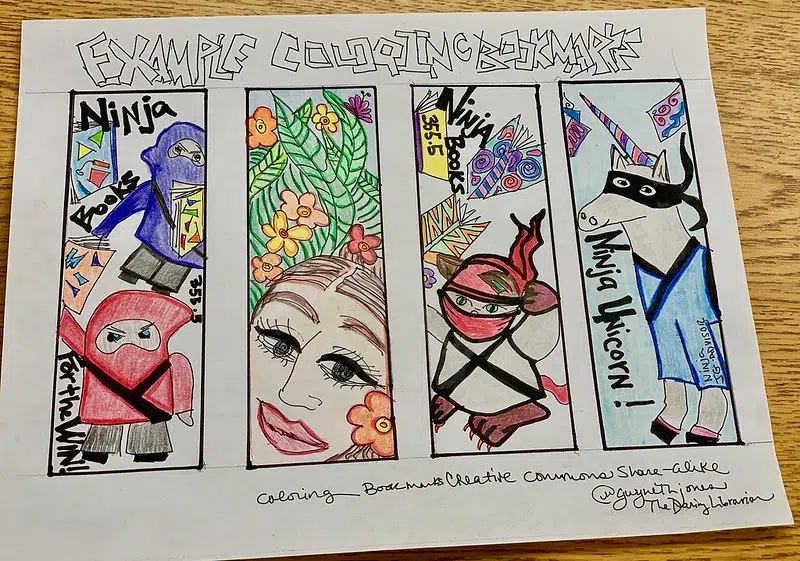 EXAMPLE COLORING BOOKMARKS
Ninja
Books
355.5
For the WIN!
355.5
Ninja
Books
Ninja Unicorn!
NINJA
Coloring Bookmarks Creative Commons Share-alike
@gwynethjones
The Daring Librarian